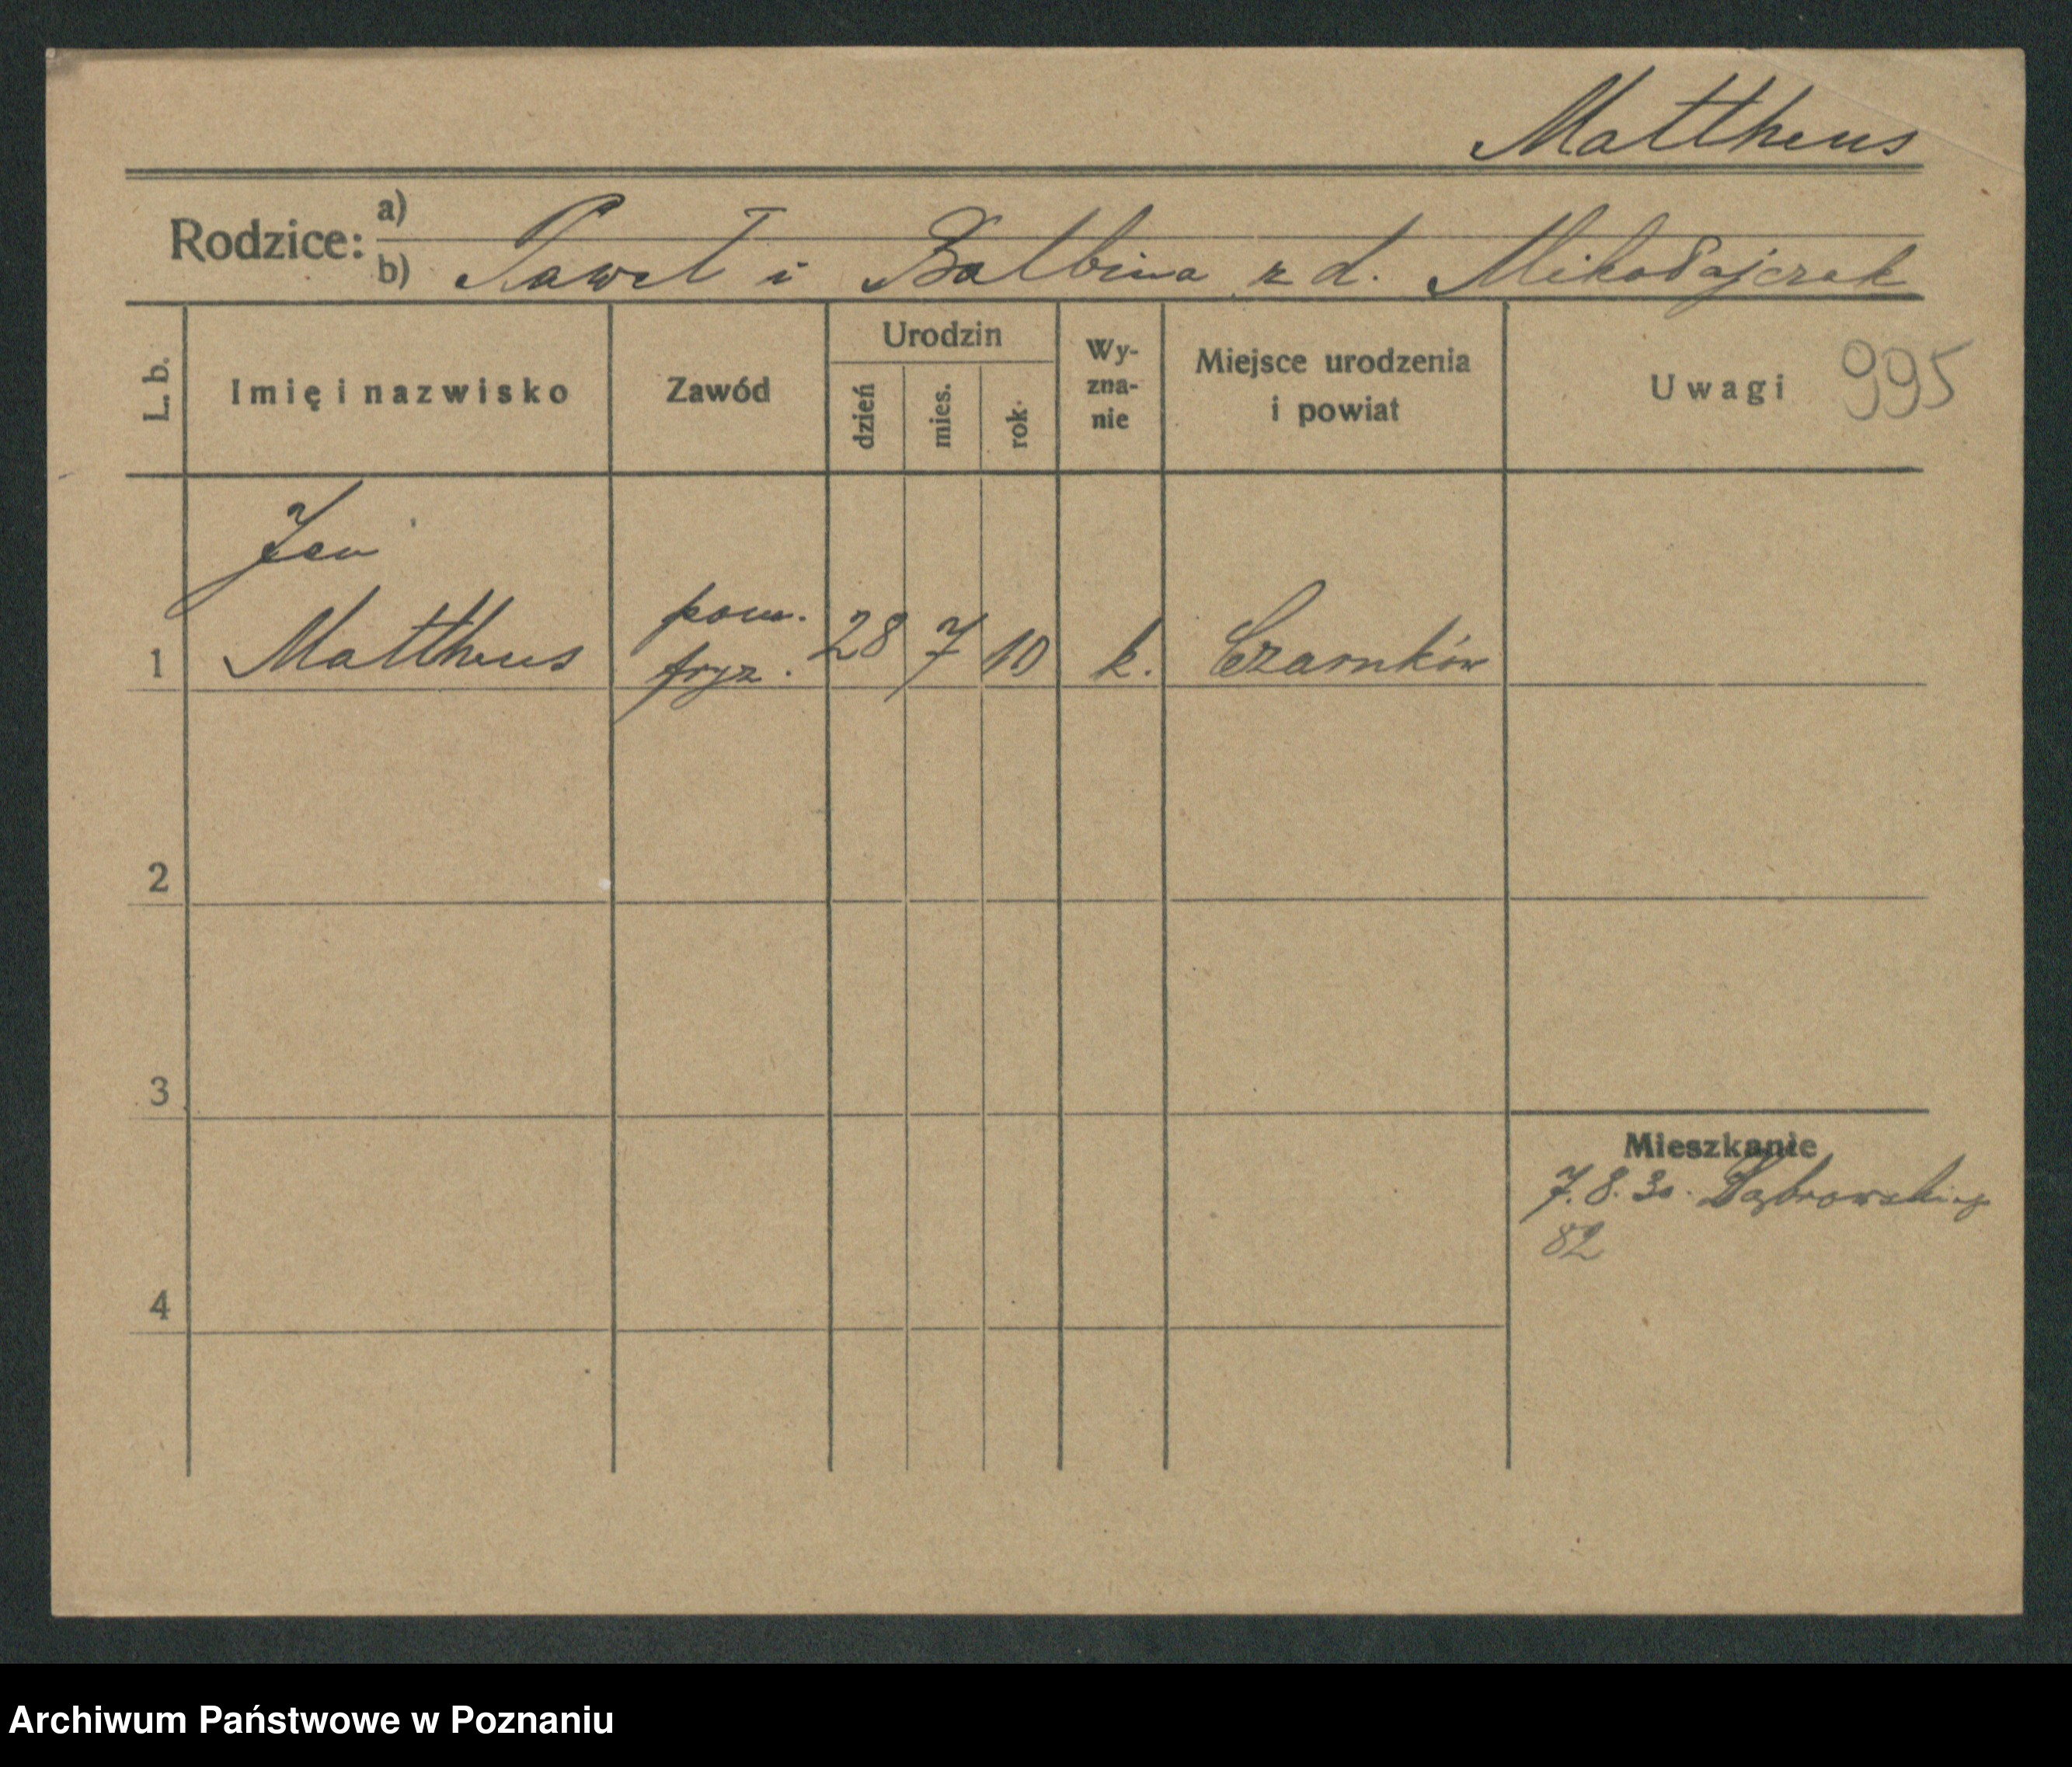 Mattheus
Rodzice: a)
b) Paweł i Balbina z d. Mikołajczak
L. b. Imię i nazwisko Zawód Urodzin dzień mies. rok. Wy-
zna-
nie Miejsce urodzenia
i powiat Uwagi 995
Jan
pom.
1 Mattheus fryz. 28 7 10 k. Czarnków
2
3
Mieszkanie
7.8.30. Dąbrowskiego
82
4
Archiwum Państwowe w Poznaniu